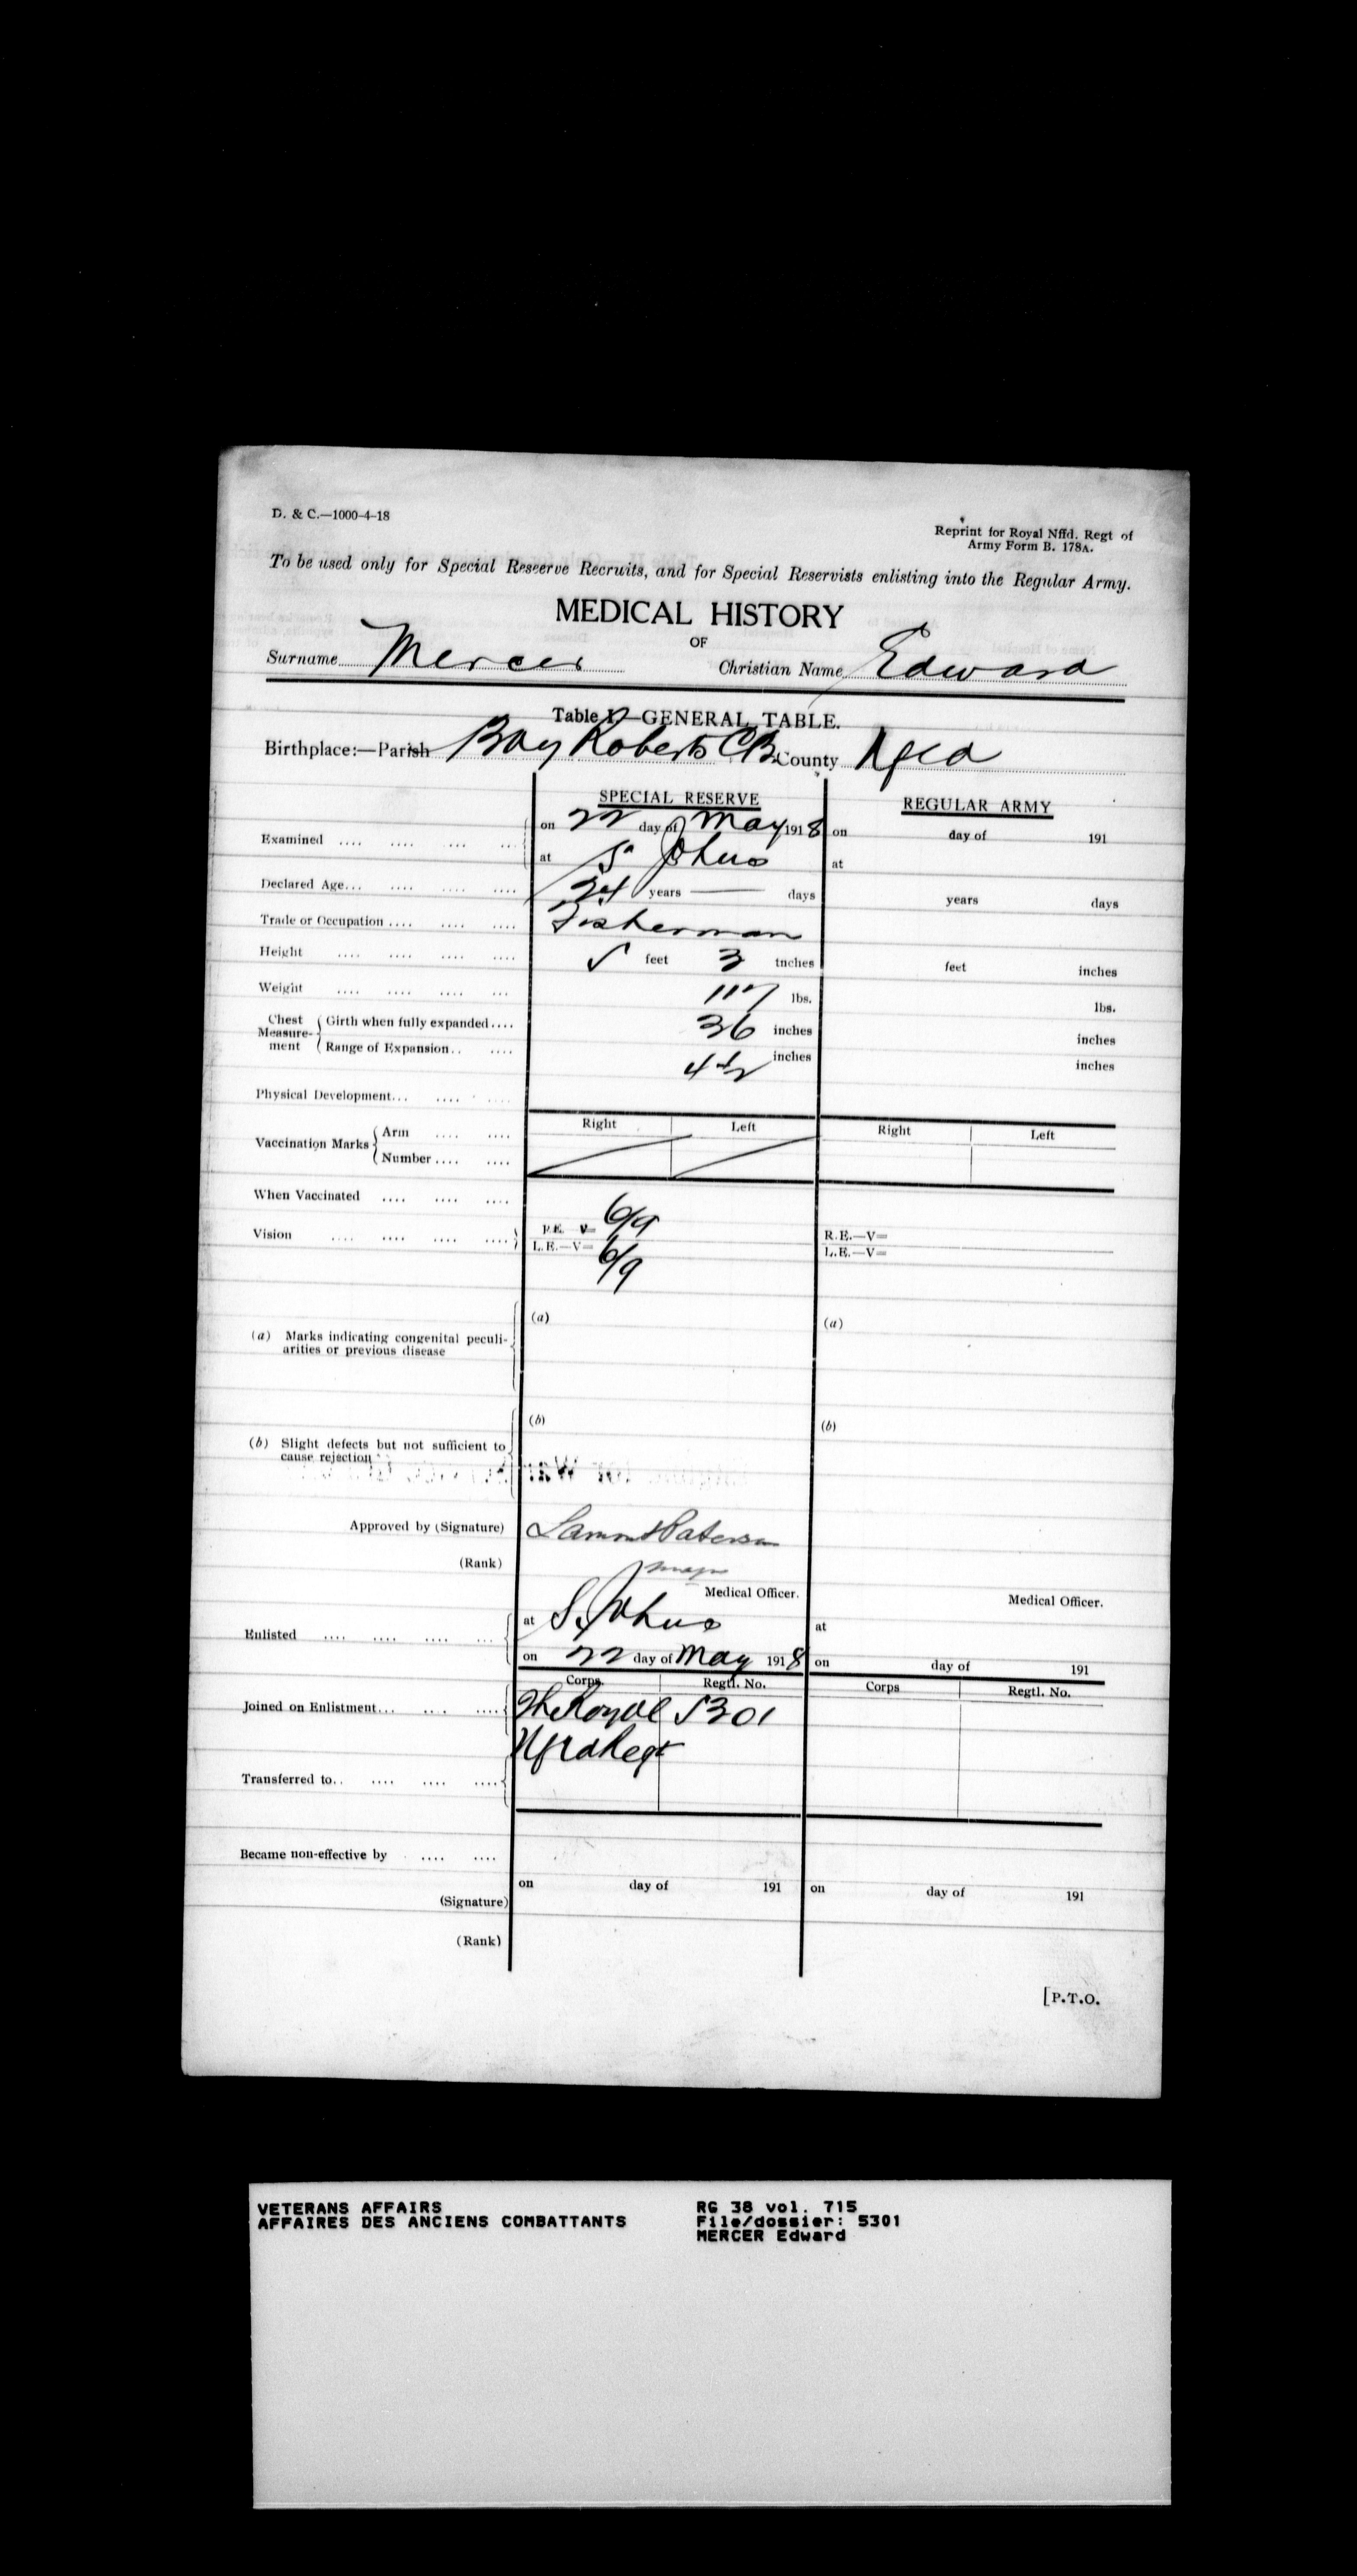 D. & C.—1000-4-18
Reprint for Royal Nffd. Regt of
Army Form B. 178A.
To be used only for Special Reserve Recruits, and for Special Reservists enlisting into the Regular Army.
MEDICAL HISTORY
OF
Surname Mercer Christian Name Edward
Table I.—GENERAL TABLE.
Birthplace:—Parish Bay Roberts CB County Nfld
SPECIAL RESERVE REGULAR ARMY
Examined .... .... .... .... on 22 day of May 1918 on day of 191
at St Johns at
Declared Age... .... .... .... 24 years — days years days
Trade or Occupation .... .... .... Fisherman
Height .... .... .... .... 5 feet 3 inches feet inches
Weight .... .... .... ... 117 lbs. lbs.
Chest Measurement { Girth when fully expanded .... 36 inches inches
Range of Expansion .. .... 4 1/2 inches inches
Physical Development... .... ....
Right Left Right Left
Vaccination Marks { Arm .... ....
Number .... ....
When Vaccinated .... .... ....
Vision .... .... .... .... R.E. V= 6/9 R.E.—V=
L.E.—V= 6/9 L.E.—V=
(a) Marks indicating congenital peculi-
arities or previous disease
(a) (a)
(b) Slight defects but not sufficient to
cause rejection
(b) (b)
Approved by (Signature) Lamont Paterson
(Rank) Major
Medical Officer. Medical Officer.
Enlisted .... .... .... ... at St Johns at
on 22 day of May 1918 on day of 191
Corps. Regtl. No. Corps Regtl. No.
Joined on Enlistment... .... .... The Royal 5301
Nfld Regt
Transferred to.. .... .... ....
Became non-effective by .... ....
on day of 191 on day of 191
(Signature)
(Rank)
[P.T.O.
VETERANS AFFAIRS RG 38 vol. 715
AFFAIRES DES ANCIENS COMBATTANTS File/dossier: 5301
MERCER Edward